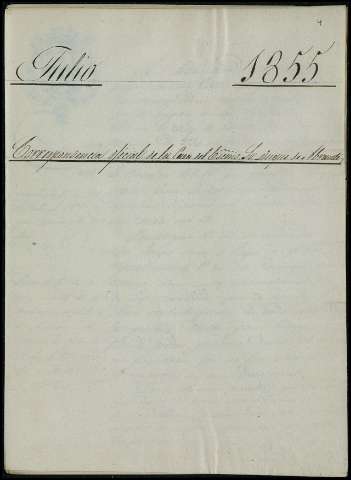 Julio 1855
Correspondencia oficial de la Casa del Excmo. Sr. duque de Abrantes